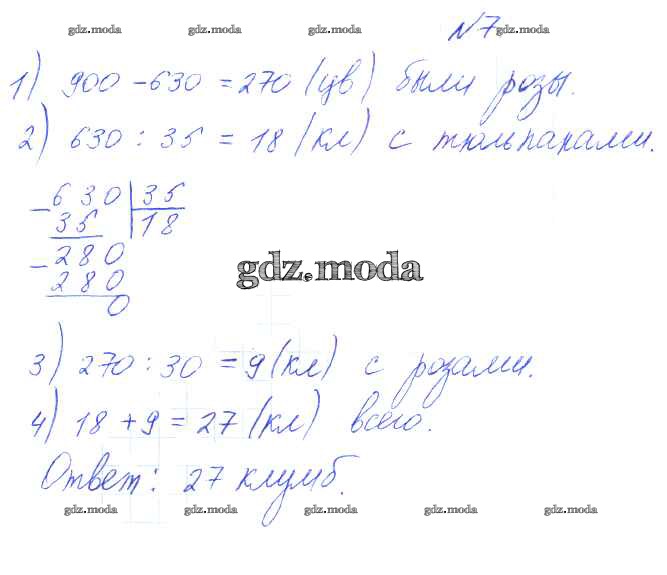 №7
gdz.moda gdz.moda gdz.moda gdz.moda gdz.moda
1) 900 - 630 = 270 (цв) были розы.
2) 630 : 35 = 18 (кл) с тюльпанами.
- 630 | 35
35 | 18
- 280
280
0
gdz.moda
3) 270 : 30 = 9 (кл) с розами.
4) 18 + 9 = 27 (кл) всего.
Ответ: 27 клумб.
gdz.moda gdz.moda gdz.moda gdz.moda gdz.moda